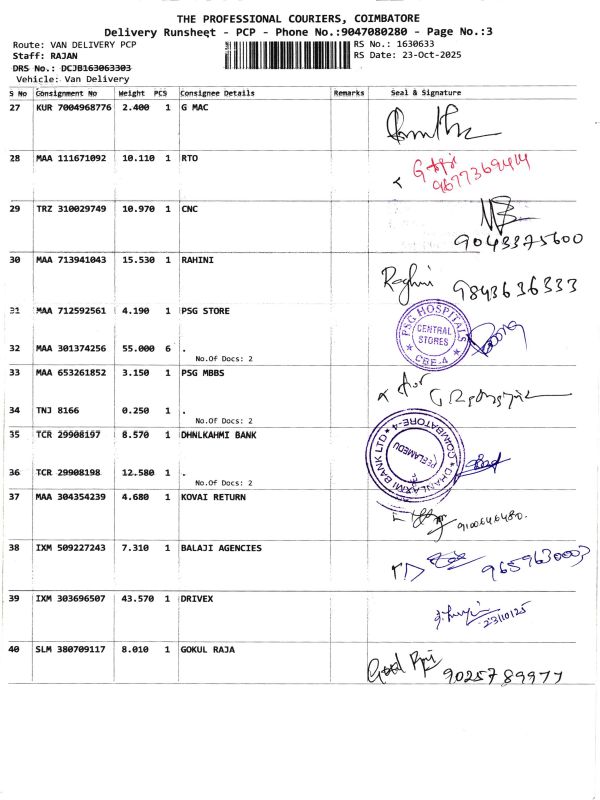 THE PROFESSIONAL COURIERS, COIMBATORE
Delivery Runsheet - PCP - Phone No.:9047080280 - Page No.:3
Route: VAN DELIVERY PCP RS No.: 1630633
Staff: RAJAN RS Date: 23-Oct-2025
DRS No.: DCJB163063303
Vehicle: Van Delivery
S No Consignment No Weight PCS Consignee Details Remarks Seal & Signature
27 KUR 7004968776 2.400 1 G MAC
28 MAA 111671092 10.110 1 RTO
9677369414
29 TRZ 310029749 10.970 1 CNC
9043375600
30 MAA 713941043 15.530 1 RAHINI
Raghni 9843636333
31 MAA 712592561 4.190 1 PSG STORE
PSG HOSPITALS
CENTRAL
STORES
CBE-4
32 MAA 301374256 55.000 6 .
No.Of Docs: 2
33 MAA 653261852 3.150 1 PSG MBBS
34 TNJ 8166 0.250 1 .
No.Of Docs: 2
35 TCR 29908197 8.570 1 DHNLKAHMI BANK
DHANLAXMI BANK LTD
COIMBATORE-4
PEELAMEDU
36 TCR 29908198 12.580 1 .
No.Of Docs: 2
37 MAA 304354239 4.680 1 KOVAI RETURN
9100646480.
38 IXM 509227243 7.310 1 BALAJI AGENCIES
9659630003
39 IXM 303696507 43.570 1 DRIVEX
23/10/25
40 SLM 380709117 8.010 1 GOKUL RAJA
9025789977